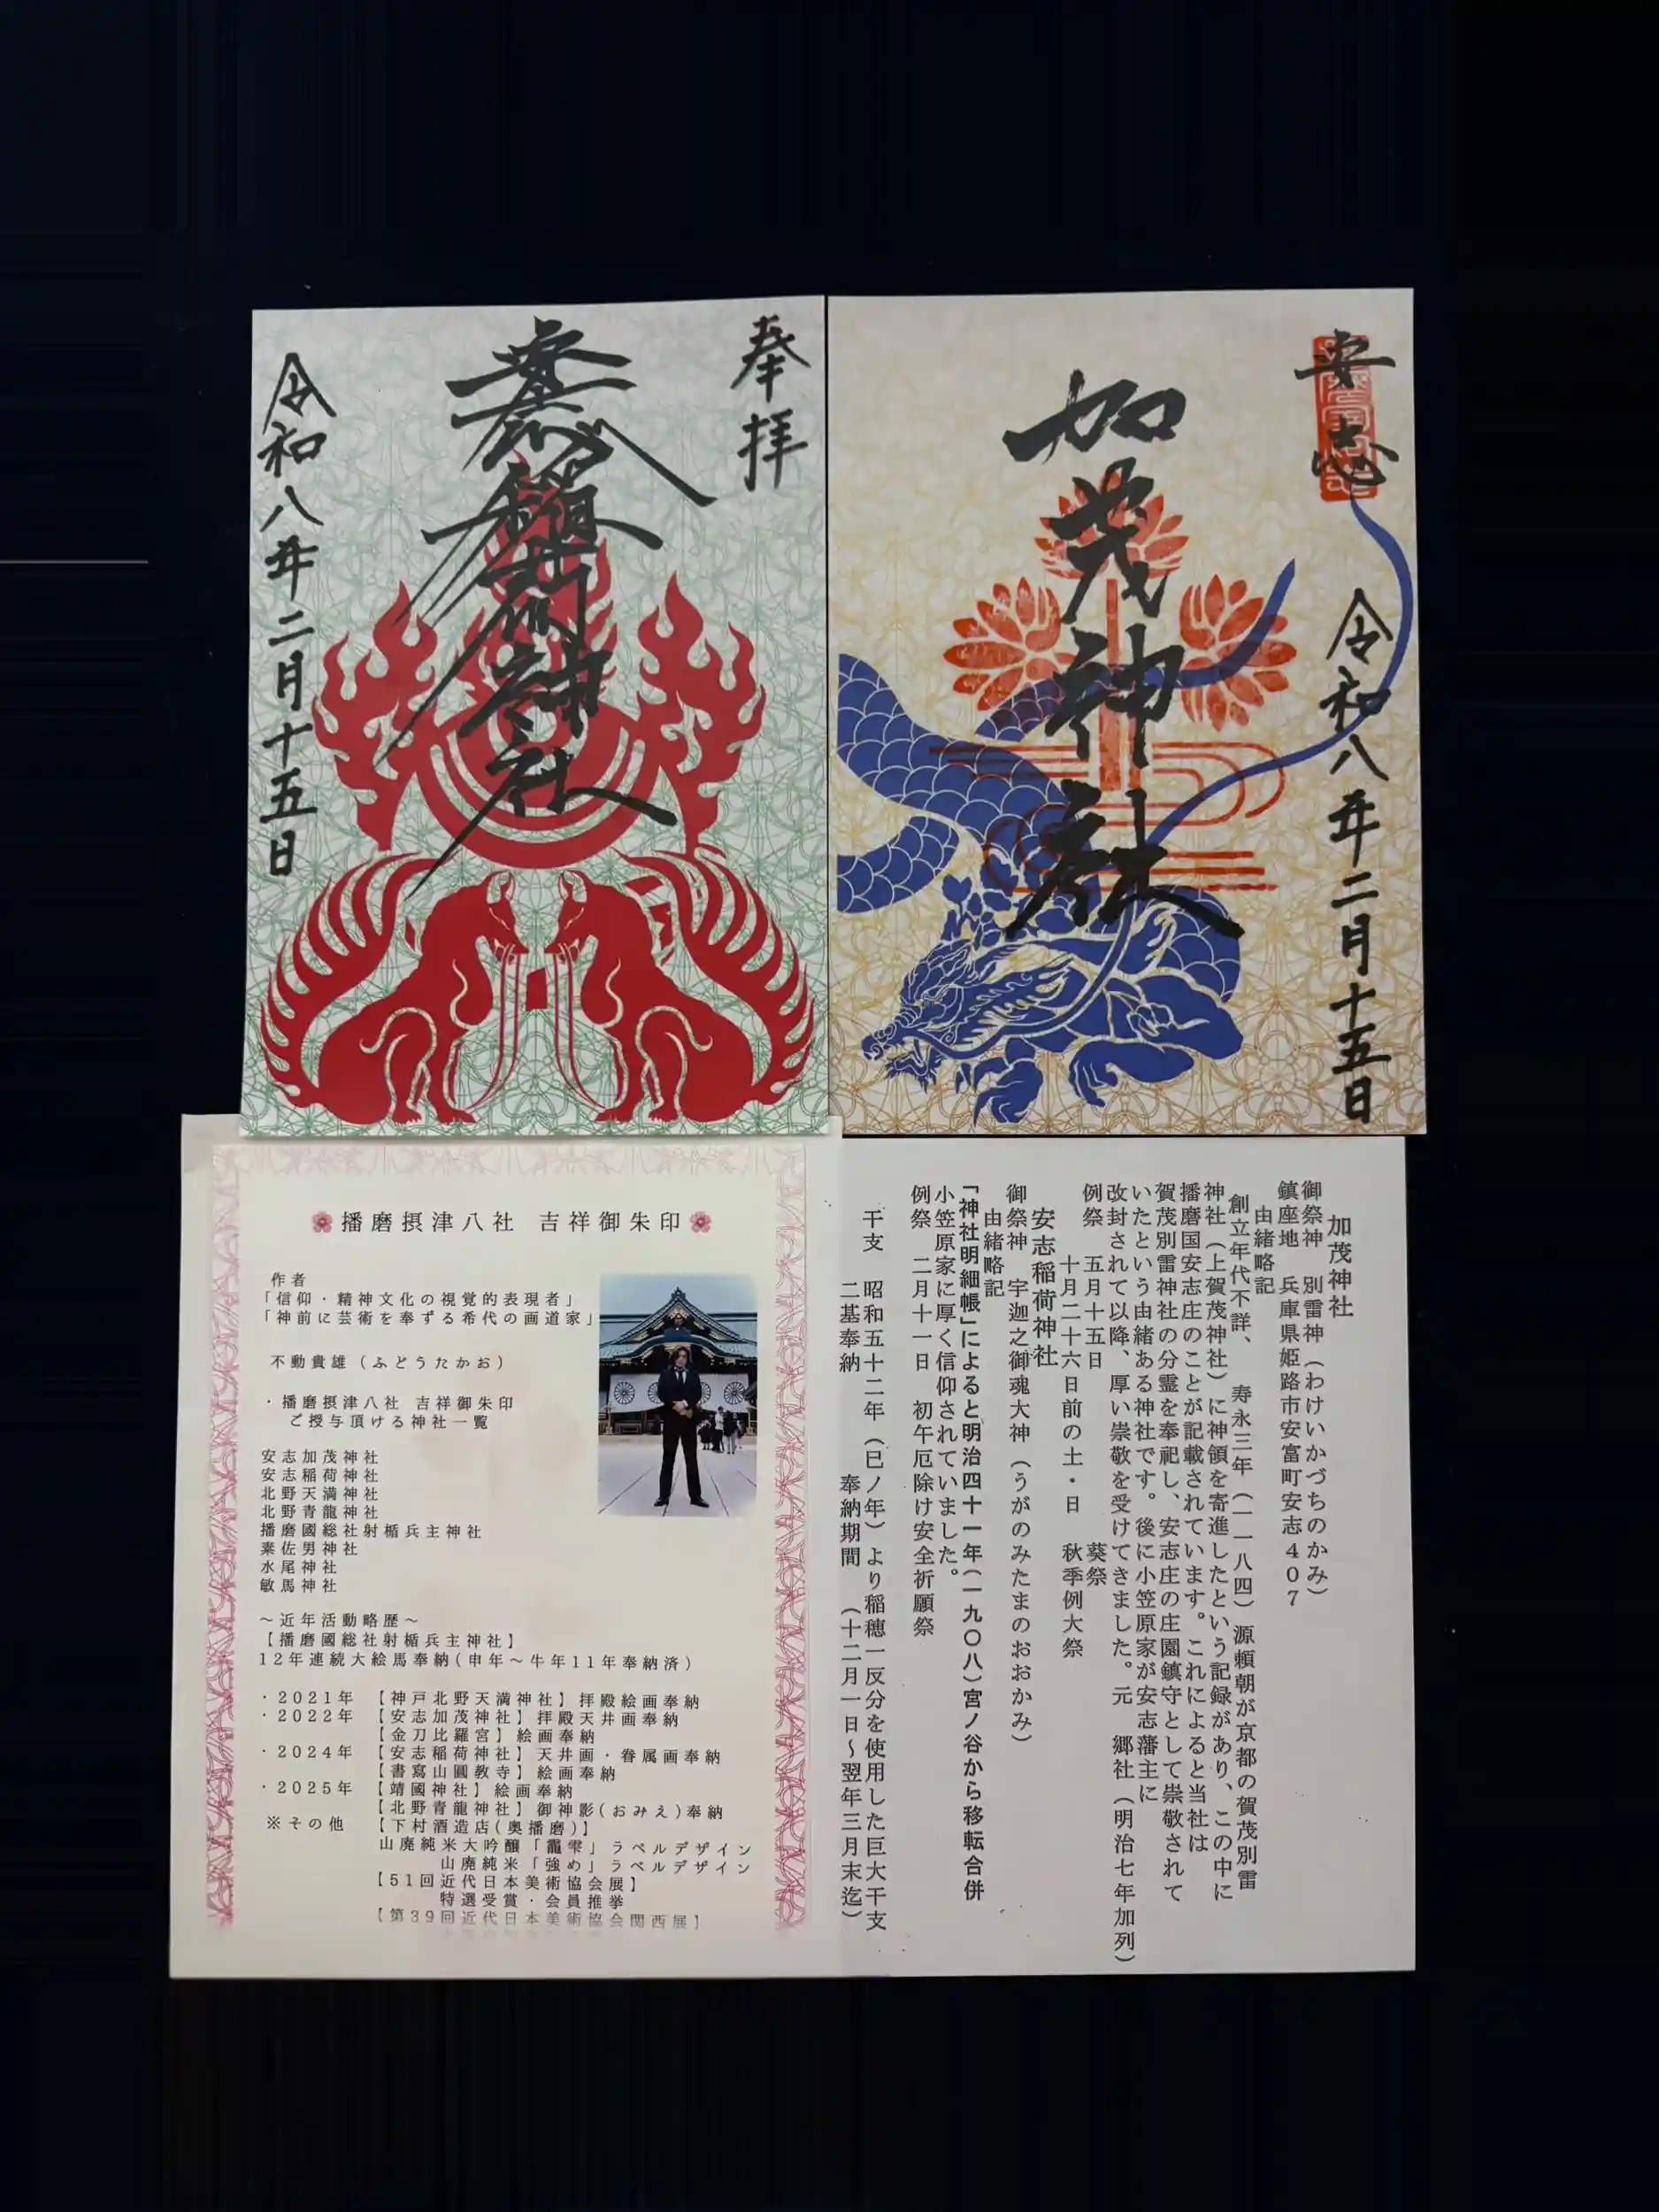 奉拝
安志稲荷神社
令和八年二月十五日
安志
加茂神社
令和八年二月十五日
播磨摂津八社 吉祥御朱印
作者
「信仰・精神文化の視覚的表現者」
「神前に芸術を奉ずる希代の画道家」
不動貴雄(ふどうたかお)
・播磨摂津八社 吉祥御朱印
ご授与頂ける神社一覧
安志加茂神社
安志稲荷神社
北野天満神社
北野青龍神社
播磨國総社射楯兵主神社
素佐男神社
水尾神社
敏馬神社
~近年活動略歴~
【播磨國総社射楯兵主神社】
12年連続大絵馬奉納(申年~牛年11年奉納済)
・2021年 【神戸北野天満神社】拝殿絵画奉納
・2022年 【安志加茂神社】拝殿天井画奉納
【金刀比羅宮】絵画奉納
・2024年 【安志稲荷神社】天井画・眷属画奉納
【書寫山圓教寺】絵画奉納
・2025年 【靖國神社】絵画奉納
【北野青龍神社】御神影(おみえ)奉納
※その他 【下村酒造店(奥播磨)】
山廃純米大吟醸「龗雫」ラベルデザイン
山廃純米「強め」ラベルデザイン
【51回近代日本美術協会展】
特選受賞・会員推挙
【第39回近代日本美術協会関西展】
加茂神社
御祭神 別雷神(わけいかづちのかみ)
鎮座地 兵庫県姫路市安富町安志407
由緒略記
創立年代不詳、寿永三年(一一八四)源頼朝が京都の賀茂別雷
神社(上賀茂神社)に神領を寄進したという記録があり、この中に
播磨国安志庄のことが記載されています。これによると当社は
賀茂別雷神社の分霊を奉祀し、安志庄の庄園鎮守として崇敬されて
いたという由緒ある神社です。後に小笠原家が安志藩主に
改封されて以降、厚い崇敬を受けてきました。元 郷社(明治七年加列)
例祭 五月十五日 葵祭
十月二十六日前の土・日 秋季例大祭
安志稲荷神社
御祭神 宇迦之御魂大神(うがのみたまのおおかみ)
由緒略記
「神社明細帳」によると明治四十一年(一九〇八)宮ノ谷から移転合併
小笠原家に厚く信仰されていました。
例祭 二月十一日 初午厄除け安全祈願祭
干支 昭和五十二年(巳ノ年)より稲穂一反分を使用した巨大干支
二基奉納 奉納期間 (十二月一日~翌年三月末迄)